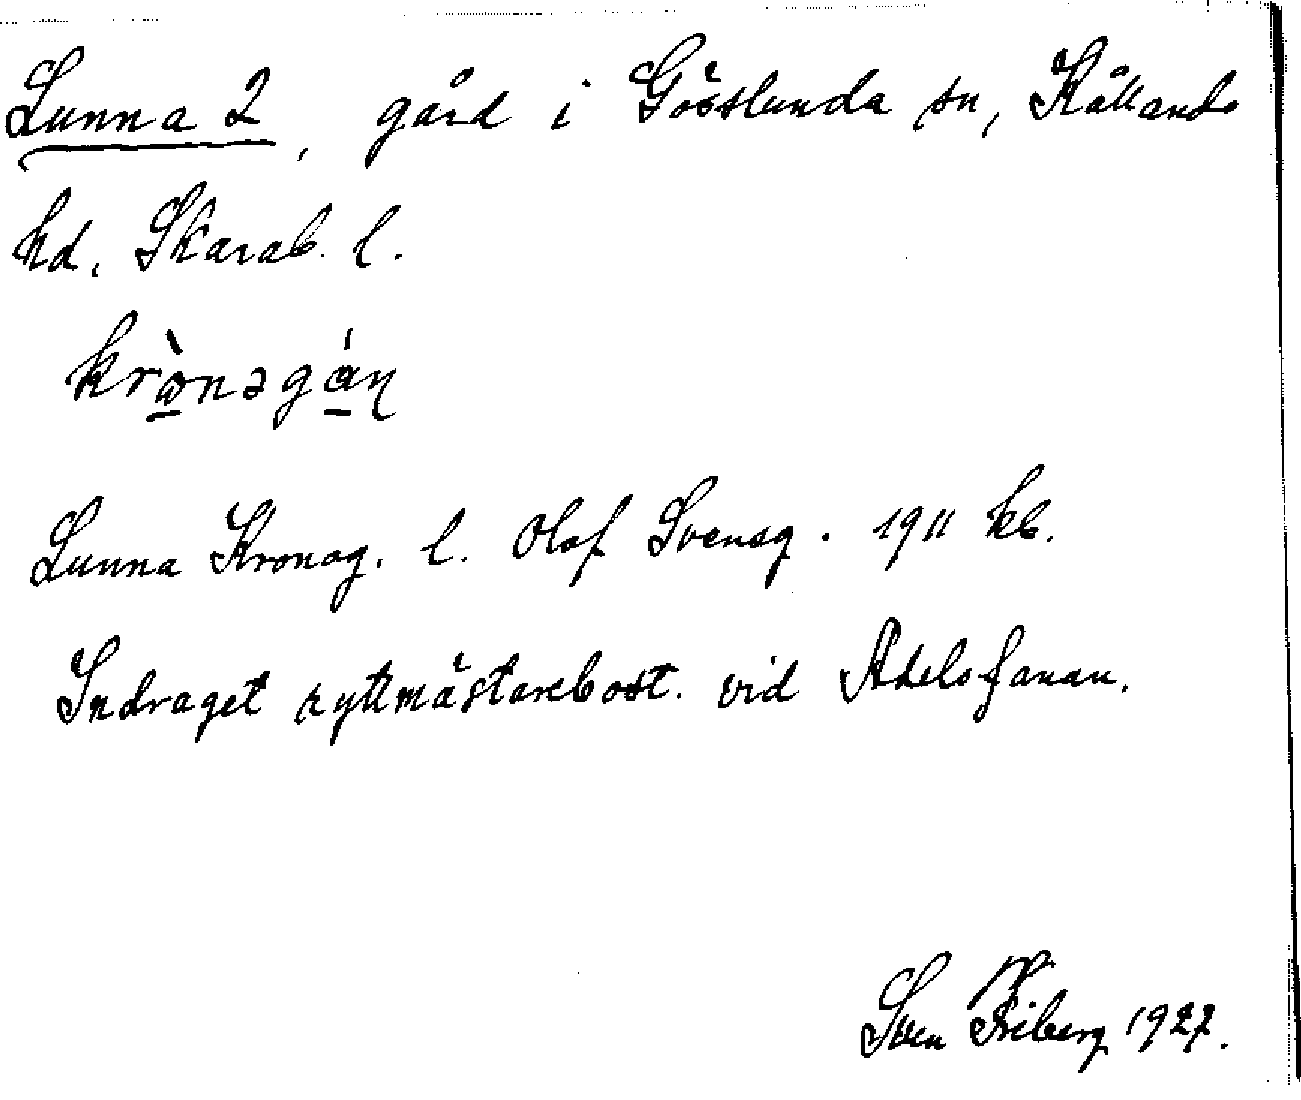 Lunna 2, gård i Gösslunda sn, Kållands
hd. Skarab. l.
krò̠nəgá̠ɳ
Lunna Kronog. l. Olof Svensg. 1911 kb.
Indraget ryttmästarebost. vid Adelsfanan.
Sven Friberg 1927.